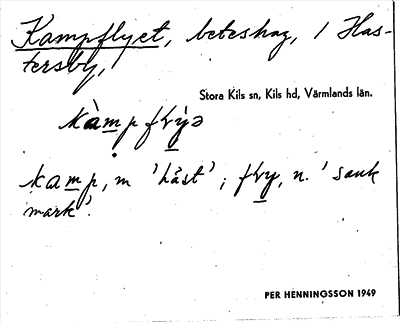 Kampflyet, beteshag, i Has-
tersby,
Stora Kils sn, Kils hd, Värmlands län.
kàmpfɽỳə
kamp, m 'häst'; fɽy, n. 'sank
mark'.
PER HENNINGSSON 1949